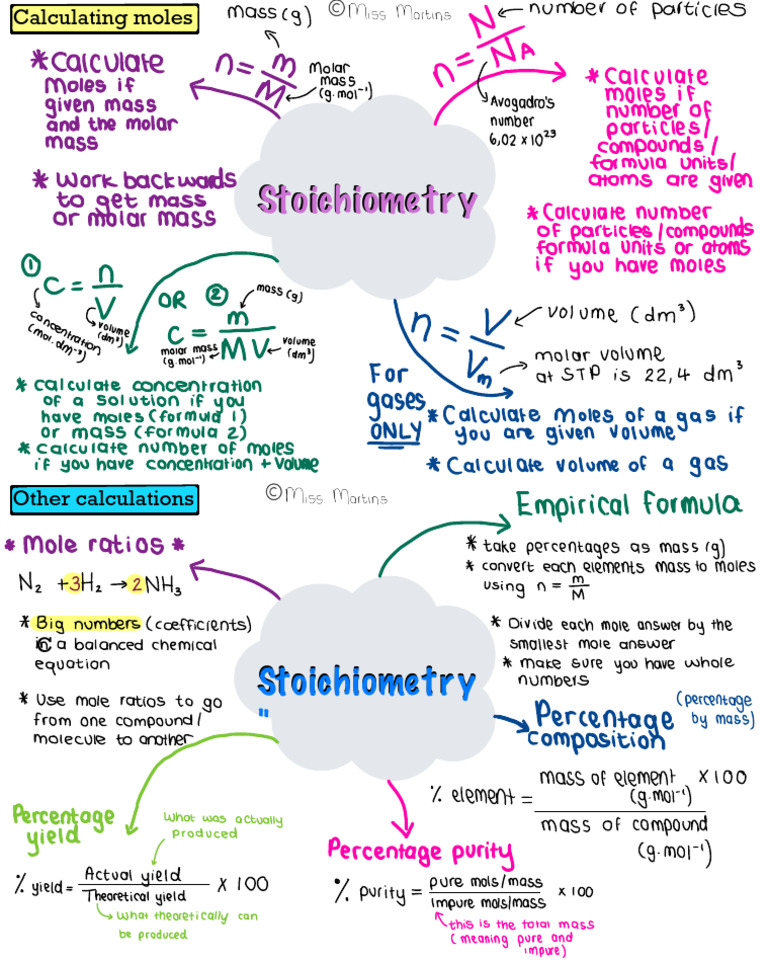 Calculating moles
©Miss Martins
mass(g)
n = m/M
Molar
mass
(g.mol⁻¹)
* Calculate
moles if
given mass
and the molar
mass
* Work backwards
to get mass
or molar mass
n = N/NA
number of particles
Avogadro's
number
6,02 x 10²³
* Calculate
moles if
number of
particles/
compounds/
formula units/
atoms are given
* Calculate number
of particles/compounds
formula units or atoms
if you have moles
Stoichiometry
① C = n/V
concentration
(mol.dm⁻³)
volume
(dm³)
OR ②
C = m/MV
mass(g)
molar mass
(g.mol⁻¹)
volume
(dm³)
* calculate concentration
of a solution if you
have moles (formula 1)
or mass (formula 2)
* calculate number of moles
if you have concentration + volume
n = V/Vm
volume (dm³)
molar volume
at STP is 22,4 dm³
For
gases
ONLY
* Calculate moles of a gas if
you are given volume
* Calculate volume of a gas
Other calculations
©Miss Martins
* Mole ratios *
N₂ + 3H₂ → 2NH₃
* Big numbers (coefficients)
in a balanced chemical
equation
* Use mole ratios to go
from one compound/
molecule to another
Empirical formula
* take percentages as mass (g)
* convert each elements mass to moles
using n = m/M
* Divide each mole answer by the
smallest mole answer
* make sure you have whole
numbers
Stoichiometry
"
Percentage
composition
(percentage
by mass)
% element = mass of element (g.mol⁻¹) x 100
mass of compound
(g.mol⁻¹)
Percentage
yield
What was actually
produced
% yield = Actual yield/Theoretical yield x 100
What theoretically can
be produced
Percentage purity
% purity = pure mols/mass x 100
impure mols/mass
this is the total mass
(meaning pure and
impure)